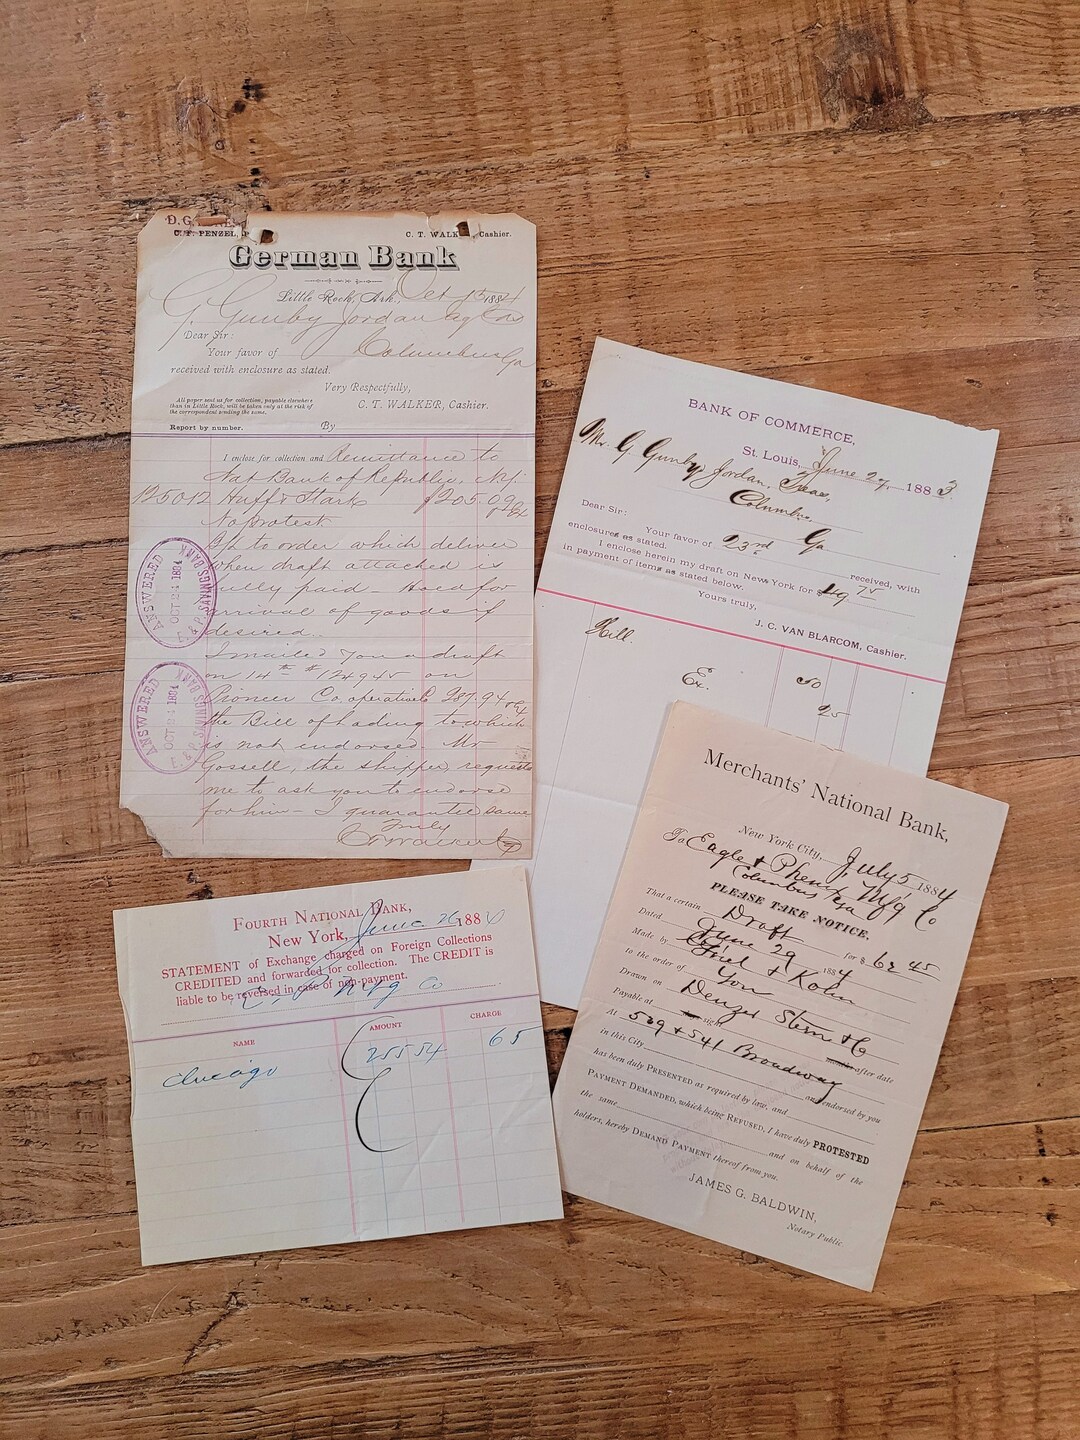 C. F. PENZEL,
C. T. WALKER, Cashier.
German Bank
Little Rock, Ark., Oct 1884
G. Gunby Jordan
Dear Sir:
Your favor of Columbus Ga
received with enclosure as stated.
Very Respectfully,
C. T. WALKER, Cashier.
All paper sent us for collection, payable elsewhere
than in Little Rock, will be taken only at the risk of
the correspondent sending the same.
Report by number.
By
I enclose for collection and Remittance to
Nat Bank of Republic,
125012 Huff & Stark $205.09
No protest
B/L to order which deliver
when draft attached is
fully paid - Hold for
arrival of goods if
desired.
I mailed you a draft
on 14th # 124945 on
Pioneer Co. operative 287.94
the Bill of lading to which
is not endorsed. Mr
Gossell, the shipper, requests
me to ask you to endorse
for him - I guarantee same
Truly
C T Walker
ANSWERED
OCT 21 1884
E. & P. SAVINGS BANK
ANSWERED
OCT 21 1884
E. & P. SAVINGS BANK
BANK OF COMMERCE,
St. Louis, June 27, 1883.
Mr. G Gunby Jordan, Treas,
Columbus
Ga
Dear Sir:
Your favor of 23rd received, with
enclosures as stated.
I enclose herein my draft on New York for $49 75
in payment of items as stated below.
Yours truly,
J. C. VAN BLARCOM, Cashier.
Hill. 50
Ex. 25
Merchants' National Bank,
New York City, July 5 1884
To Eagle & Phenix Mfg Co
Columbus Ga
PLEASE TAKE NOTICE.
That a certain Draft for $ 62 45
Dated June 29 1884
Made by & Kohn
to the order of You
Drawn on Denzer Stern & Co
Payable at sight after date
At 539 & 541 Broadway
in this City and endorsed by you
has been duly PRESENTED as required by law, and
PAYMENT DEMANDED, which being REFUSED, I have duly PROTESTED
the same and on behalf of the
holders, hereby DEMAND PAYMENT thereof from you.
JAMES G. BALDWIN,
Notary Public
FOURTH NATIONAL BANK,
New York, June 26 188
STATEMENT of Exchange charged on Foreign Collections
CREDITED and forwarded for collection. The CREDIT is
liable to be reversed in case of non-payment.
E & P Mfg Co
NAME AMOUNT CHARGE
Chicago 255 54 65